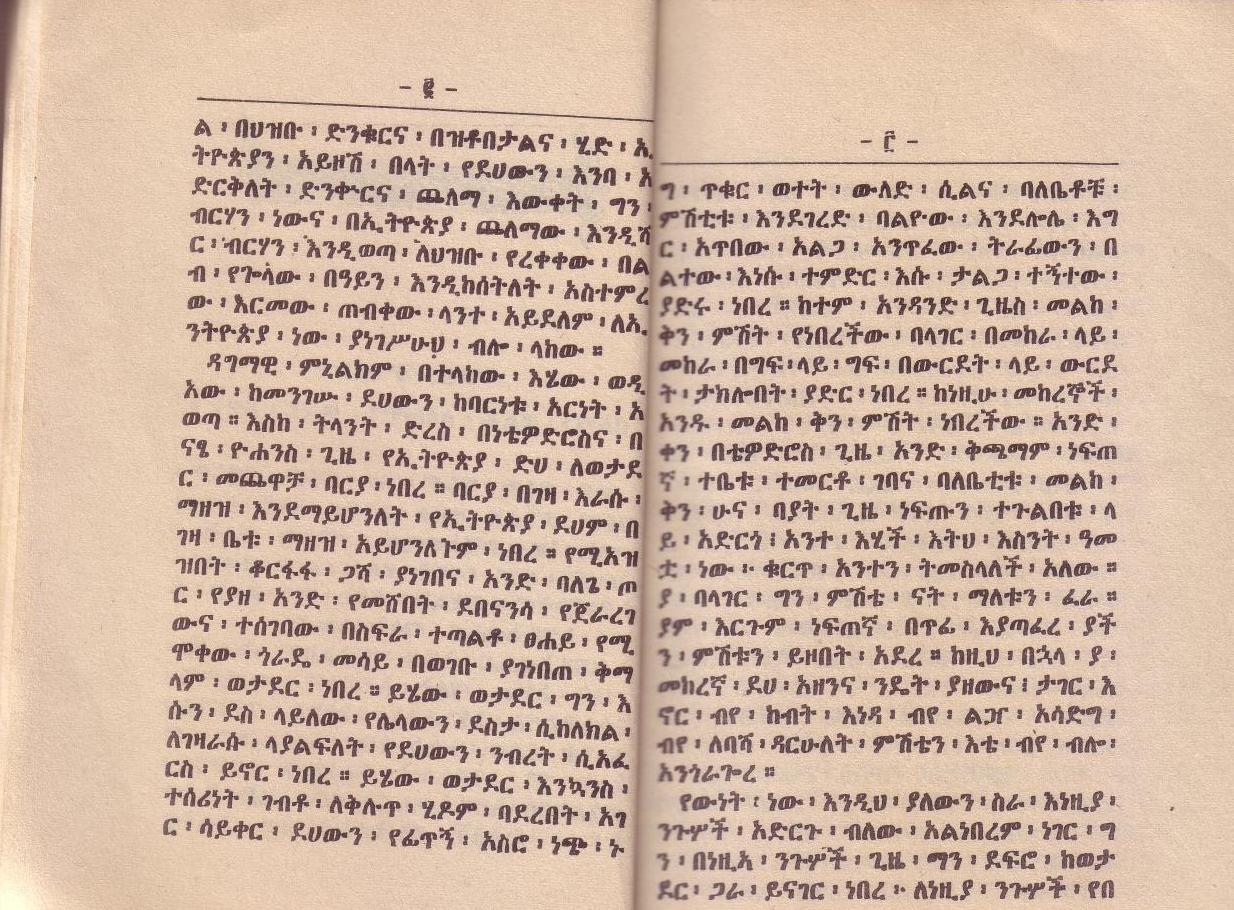 - ፪ -
ል ፡ በህዝቡ ፡ ድንቁርና ፡ በዝቶበታልና ፡ ሂድ ፡ ኢ
ትዮጵያን ፡ አይዞሽ ፡ በላት ፡ የደሀውን ፡ እንባ ፡ አ
ድርቅለት ፡ ድንቍርና ፡ ጨለማ ፡ እውቀት ፡ ግን
ብርሃን ፡ ነውና ፡ በኢትዮጵያ ፡ ጨለማው ፡ እንዲሻ
ር ፡ ብርሃን ፡ እንዲወጣ ፡ ለህዝቡ ፡ የረቀቀው ፡ በል
ብ ፡ የጐላው ፡ በዓይን ፡ እንዲከሰትለት ፡ አስተምረ
ው ፡ እርመው ፡ ጠብቀው ፡ ላንተ ፡ አይደለም ፡ ለኢ
ንትዮጵያ ፡ ነው ፡ ያነገሥሁህ ፡ ብሎ ፡ ላከው ።
ዳግማዊ ፡ ምኒልክም ፡ በተላከው ፡ እሄው ፡ ወዲ
አው ፡ ከመንገሡ ፡ ደሀውን ፡ ከባርነቱ ፡ አርነት ፡ አ
ወጣ ። እስከ ፡ ትላንት ፡ ድረስ ፡ በነቴዎድሮስና ፡ በ
ናፄ ፡ ዮሐንስ ፡ ጊዜ ፡ የኢትዮጵያ ፡ ድሀ ፡ ለወታደ
ር ፡ መጨዋቻ ፡ ባርያ ፡ ነበረ ። ባርያ ፡ በገዛ ፡ እራሱ ፡
ማዘዝ ፡ እንደማይሆንለት ፡ የኢትዮጵያ ፡ ደሀም ፡ በ
ገዛ ፡ ቤቱ ፡ ማዘዝ ፡ አይሆንለጉም ፡ ነበረ ። የሚአዝ
ዝበት ፡ ቆርፋፋ ፡ ጋሻ ፡ ያነገበና ፡ አንድ ፡ ባለጌ ፡ ጦ
ር ፡ የያዘ ፡ አንድ ፡ የመሸበት ፡ ደበናንሳ ፡ የጀራረገ
ውና ፡ ተሰገባው ፡ በስፍራ ፡ ተጣልቶ ፡ ፀሐይ ፡ የሚ
ሞቀው ፡ ጎራዴ ፡ መሳይ ፡ በወገቡ ፡ ያገነበጠ ፡ ቅማ
ላም ፡ ወታደር ፡ ነበረ ። ይሄው ፡ ወታደር ፡ ግን ፡ እ
ሱን ፡ ደስ ፡ ላይለው ፡ የሌላውን ፡ ደስታ ፡ ሲከለክል ፡
ለገዛራሱ ፡ ላያልፍለት ፡ የደሀውን ፡ ንብረት ፡ ሲአፈ
ርስ ፡ ይኖር ፡ ነበረ ። ይሄው ፡ ወታደር ፡ እንኳንስ ፡
ተሰሪነት ፡ ገብቶ ፡ ለቅሉጥ ፡ ሂዶም ፡ ባደረበት ፡ አገ
ር ፡ ሳይቀር ፡ ደሀውን ፡ የፊጥኝ ፡ አስሮ ፡ ነጭ ፡ ኑ
- ፫ -
ግ ፡ ጥቁር ፡ ወተት ፡ ውለድ ፡ ሲልና ፡ ባለቤቶቹ ፡
ምሽቲቱ ፡ እንደገረድ ፡ ባልዮው ፡ እንደሎሌ ፡ እግ
ር ፡ አጥበው ፡ አልጋ ፡ አንጥፈው ፡ ትራፊውን ፡ በ
ልተው ፡ እነሱ ፡ ተምድር ፡ እሱ ፡ ታልጋ ፡ ተኝተው ፡
ያድሩ ፡ ነበረ ። ከተም ፡ አንዳንድ ፡ ጊዜስ ፡ መልከ ፡
ቅን ፡ ምሽት ፡ የነበረችው ፡ በላገር ፡ በመከራ ፡ ላይ ፡
መከራ ፡ በግፍ ፡ ላይ ፡ ግፍ ፡ በውርደት ፡ ላይ ፡ ውርደ
ት ፡ ታክሎበት ፡ ያድር ፡ ነበረ ። ከነዚሁ ፡ መከረኞች ፡
አንዱ ፡ መልከ ፡ ቅን ፡ ምሽት ፡ ነበረችው ። አንድ ፡
ቀን ፡ በቴዎድሮስ ፡ ጊዜ ፡ አንድ ፡ ቅጫማም ፡ ነፍጠ
ኛ ፡ ተቤቱ ፡ ተመርቶ ፡ ገባና ፡ ባለቤቲቱ ፡ መልከ ፡
ቅን ፡ ሁና ፡ ባያት ፡ ጊዜ ፡ ነፍጡን ፡ ተጉልበቱ ፡ ላ
ይ ፡ አድርጎ ፡ አንተ ፡ እሂች ፡ እትህ ፡ እስንት ፡ ዓመ
ቷ ፡ ነው ፡ ቁርጥ ፡ አንተን ፡ ትመስላለች ፡ አለው ።
ያ ፡ ባላገር ፡ ግን ፡ ምሽቴ ፡ ናት ፡ ማለቱን ፡ ፈራ ።
ያም ፡ እርጉም ፡ ነፍጠኛ ፡ በጥፊ ፡ እያጣፈረ ፡ ያች
ን ፡ ምሽቱን ፡ ይዞበት ፡ አደረ ። ከዚህ ፡ በኋላ ፡ ያ ፡
መከረኛ ፡ ደሀ ፡ አዘንና ፡ ንዴት ፡ ያዘውና ፡ ታገር ፡ እ
ኖር ፡ ብየ ፡ ከብት ፡ እነዳ ፡ ብየ ፡ ልጧ ፡ አሳድግ ፡
ብየ ፡ ለባሻ ፡ ዳርሁለት ፡ ምሽቴን ፡ እቴ ፡ ብየ ፡ ብሎ ፡
አንጎራጐረ ።
የውነት ፡ ነው ፡ እንዲህ ፡ ያለውን ፡ ስራ ፡ እነዚያ ፡
ንጉሦች ፡ አድርጉ ፡ ብለው ፡ አልነበረም ፡ ነገር ፡ ግ
ን ፡ በነዚአ ፡ ንጉሦች ፡ ጊዜ ፡ ማን ፡ ደፍሮ ፡ ከወታ
ደር ፡ ጋራ ፡ ይናገር ፡ ነበረ ፡ ለነዚያ ፡ ንጉሦች ፡ የበ